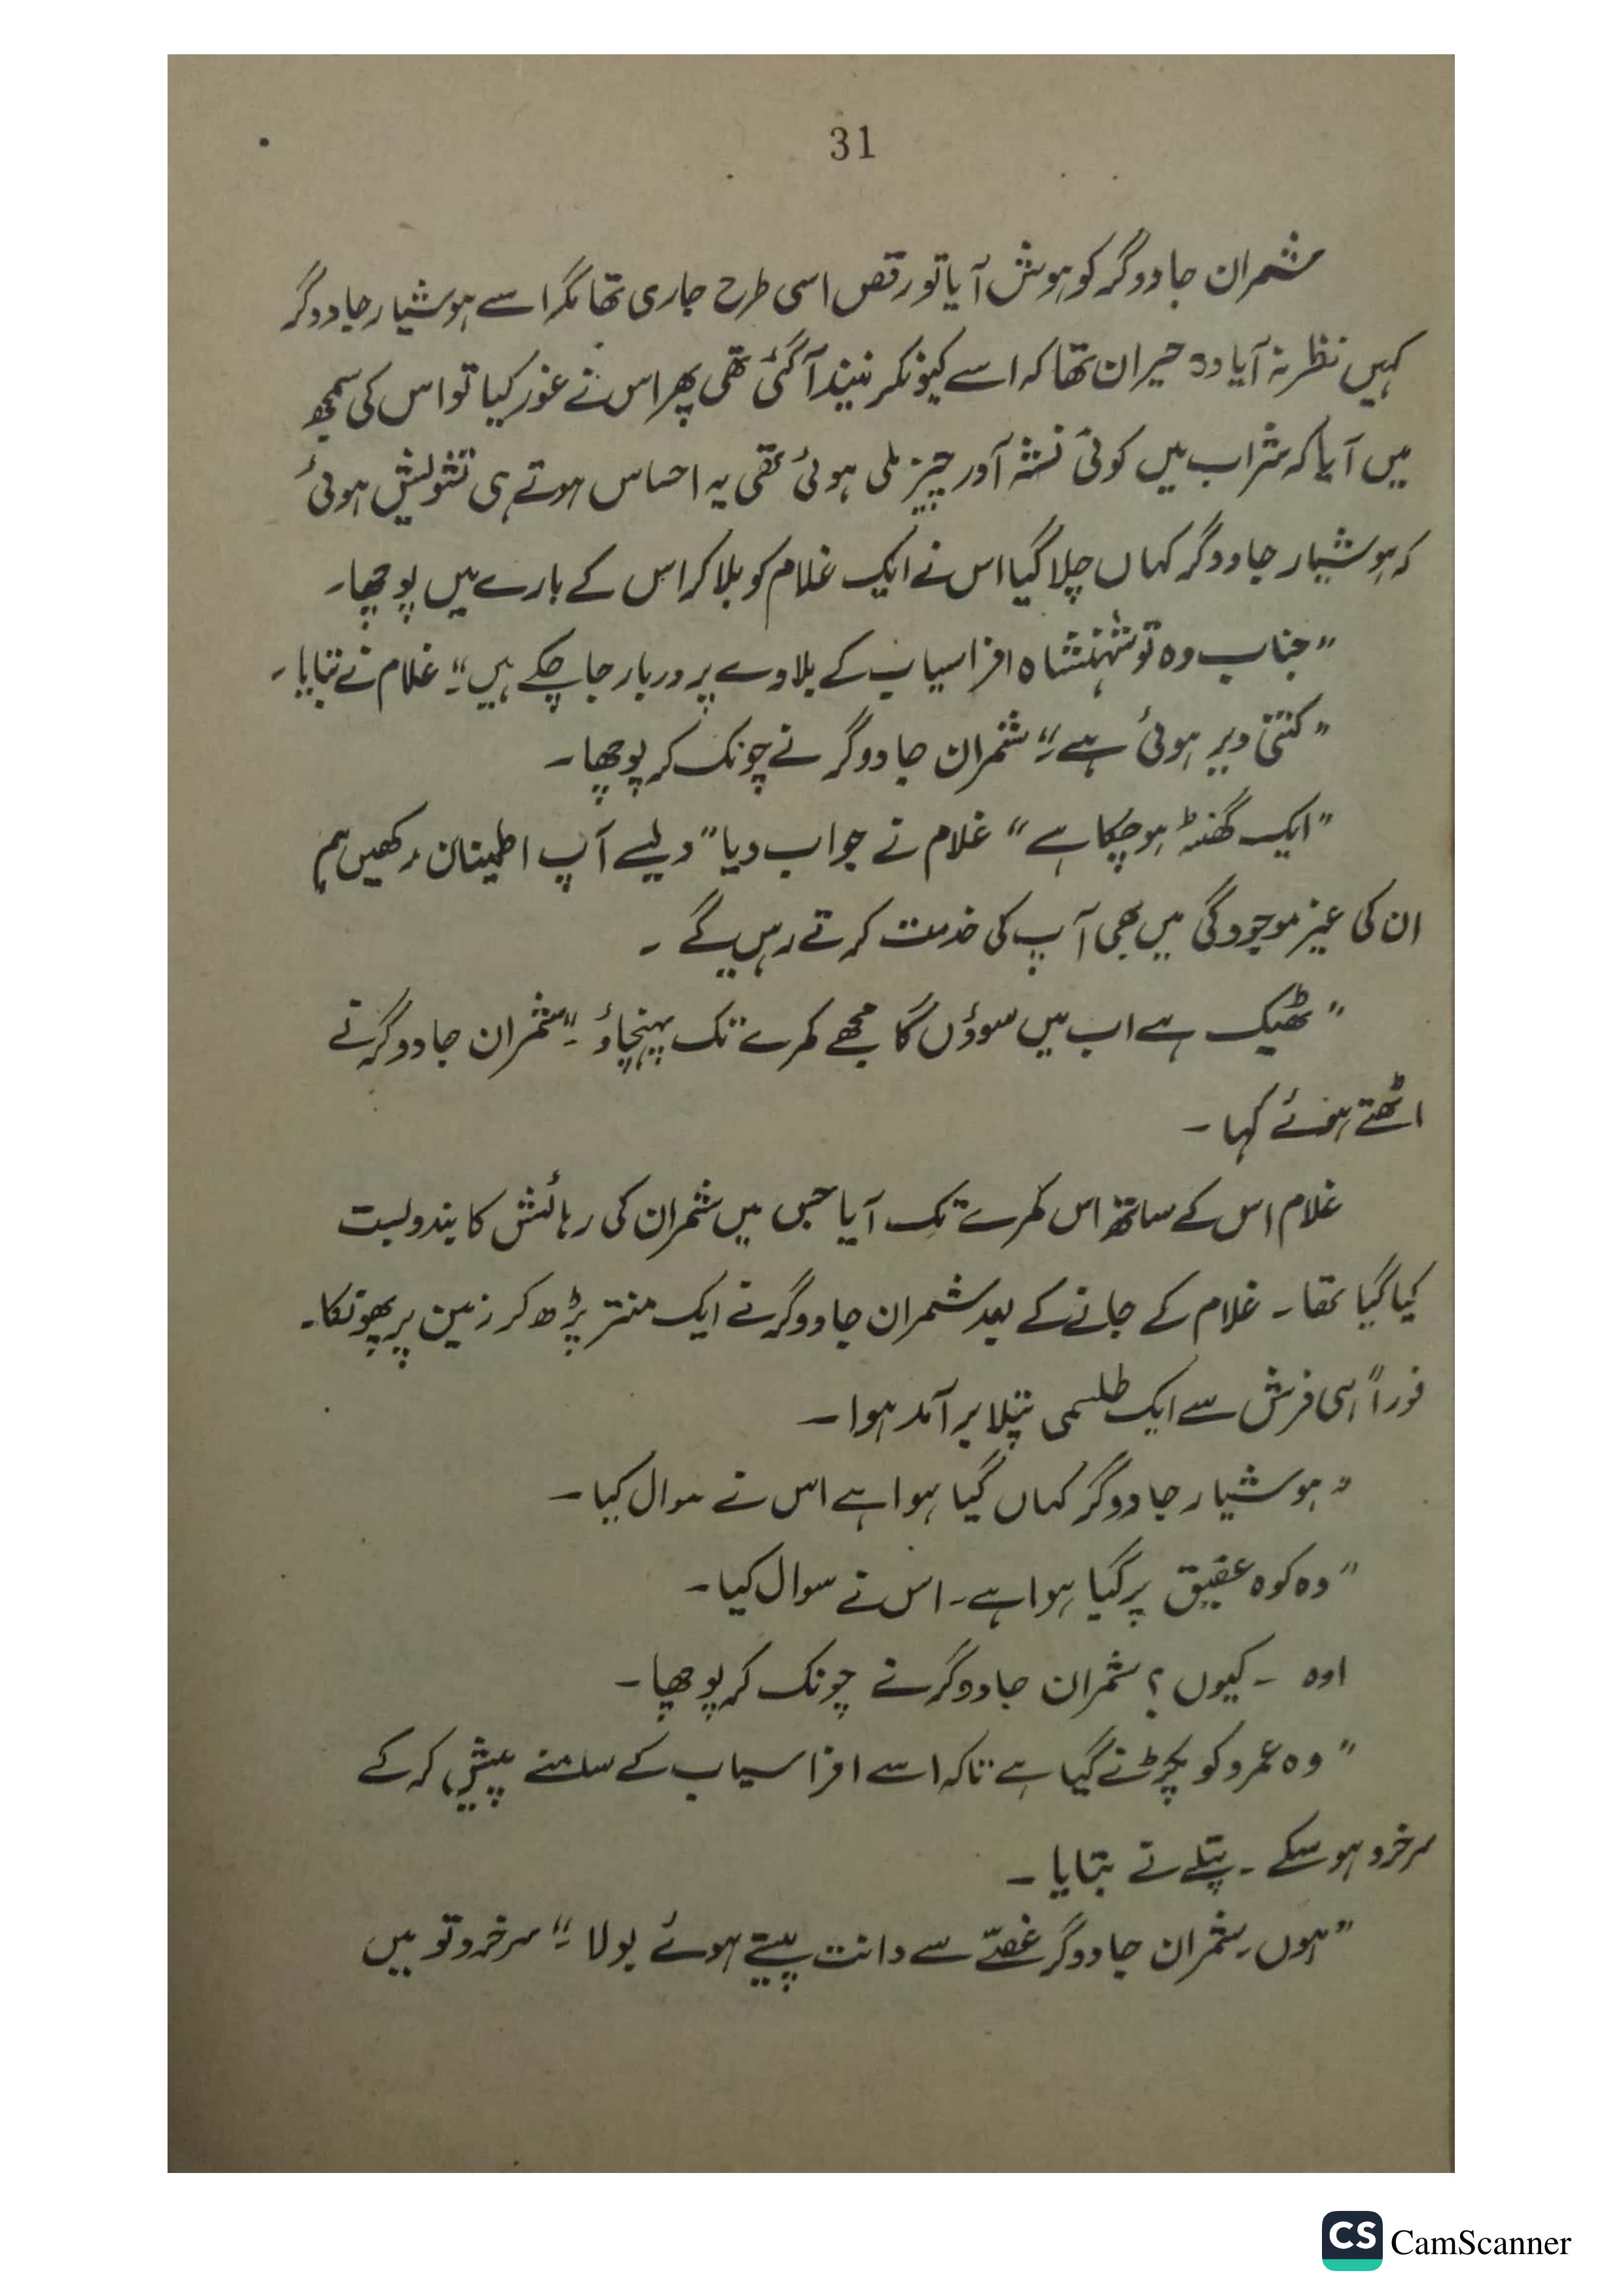 31
شمران جادوگر کو ہوش آیا تو رقص اسی طرح جاری تھا مگر اسے ہوشیار جادوگر
کہیں نظر نہ آیا وہ حیران تھا کہ اسے کیونکر نیند آگئی تھی پھر اس نے غور کیا تو اس کی سمجھ
میں آیا کہ شراب میں کوئی نشہ آور چیز ملی ہوئی تھی یہ احساس ہوتے ہی تشویش ہوئی
کہ ہوشیار جادوگر کہاں چلا گیا اس نے ایک غلام کو بلا کر اس کے بارے میں پوچھا۔
”جناب وہ تو شہنشاہ افراسیاب کے بلاوے پر دربار جا چکے ہیں“۔ غلام نے بتایا۔
”کتنی دیر ہوئی ہے“۔ شمران جادوگر نے چونک کر پوچھا۔
”ایک گھنٹہ ہو چکا ہے“ غلام نے جواب دیا ”ویسے آپ اطمینان رکھیں ہم
ان کی غیر موجودگی میں بھی آپ کی خدمت کرتے رہیں گے ۔
”ٹھیک ہے اب میں سوؤں گا مجھے کمرے تک پہنچاؤ“۔ شمران جادوگر نے
اٹھتے ہوئے کہا ۔
غلام اس کے ساتھ اس کمرے تک آیا جس میں شمران کی رہائش کا بندوبست
کیا گیا تھا ۔ غلام کے جانے کے بعد شمران جادوگر نے ایک منتر پڑھ کر زمین پر پھونکا۔
فوراً ہی فرش سے ایک طلسمی پتلا برآمد ہوا ۔
”ہوشیار جادوگر کہاں گیا ہوا ہے اس نے سوال کیا ۔
”وہ کوہ عقیق پر گیا ہوا ہے ۔ اس نے سوال کیا ۔
اوہ ۔ کیوں ؟ شمران جادوگر نے چونک کر پوچھا ۔
”وہ عمرو کو پکڑنے گیا ہے تاکہ اسے افراسیاب کے سامنے پیش کر کے
سرخرو ہو سکے ۔ پتلے نے بتایا ۔
”ہوں ۔ شمران جادوگر غصّے سے دانت پیستے ہوئے بولا“۔ سرخرو تو میں
CS CamScanner